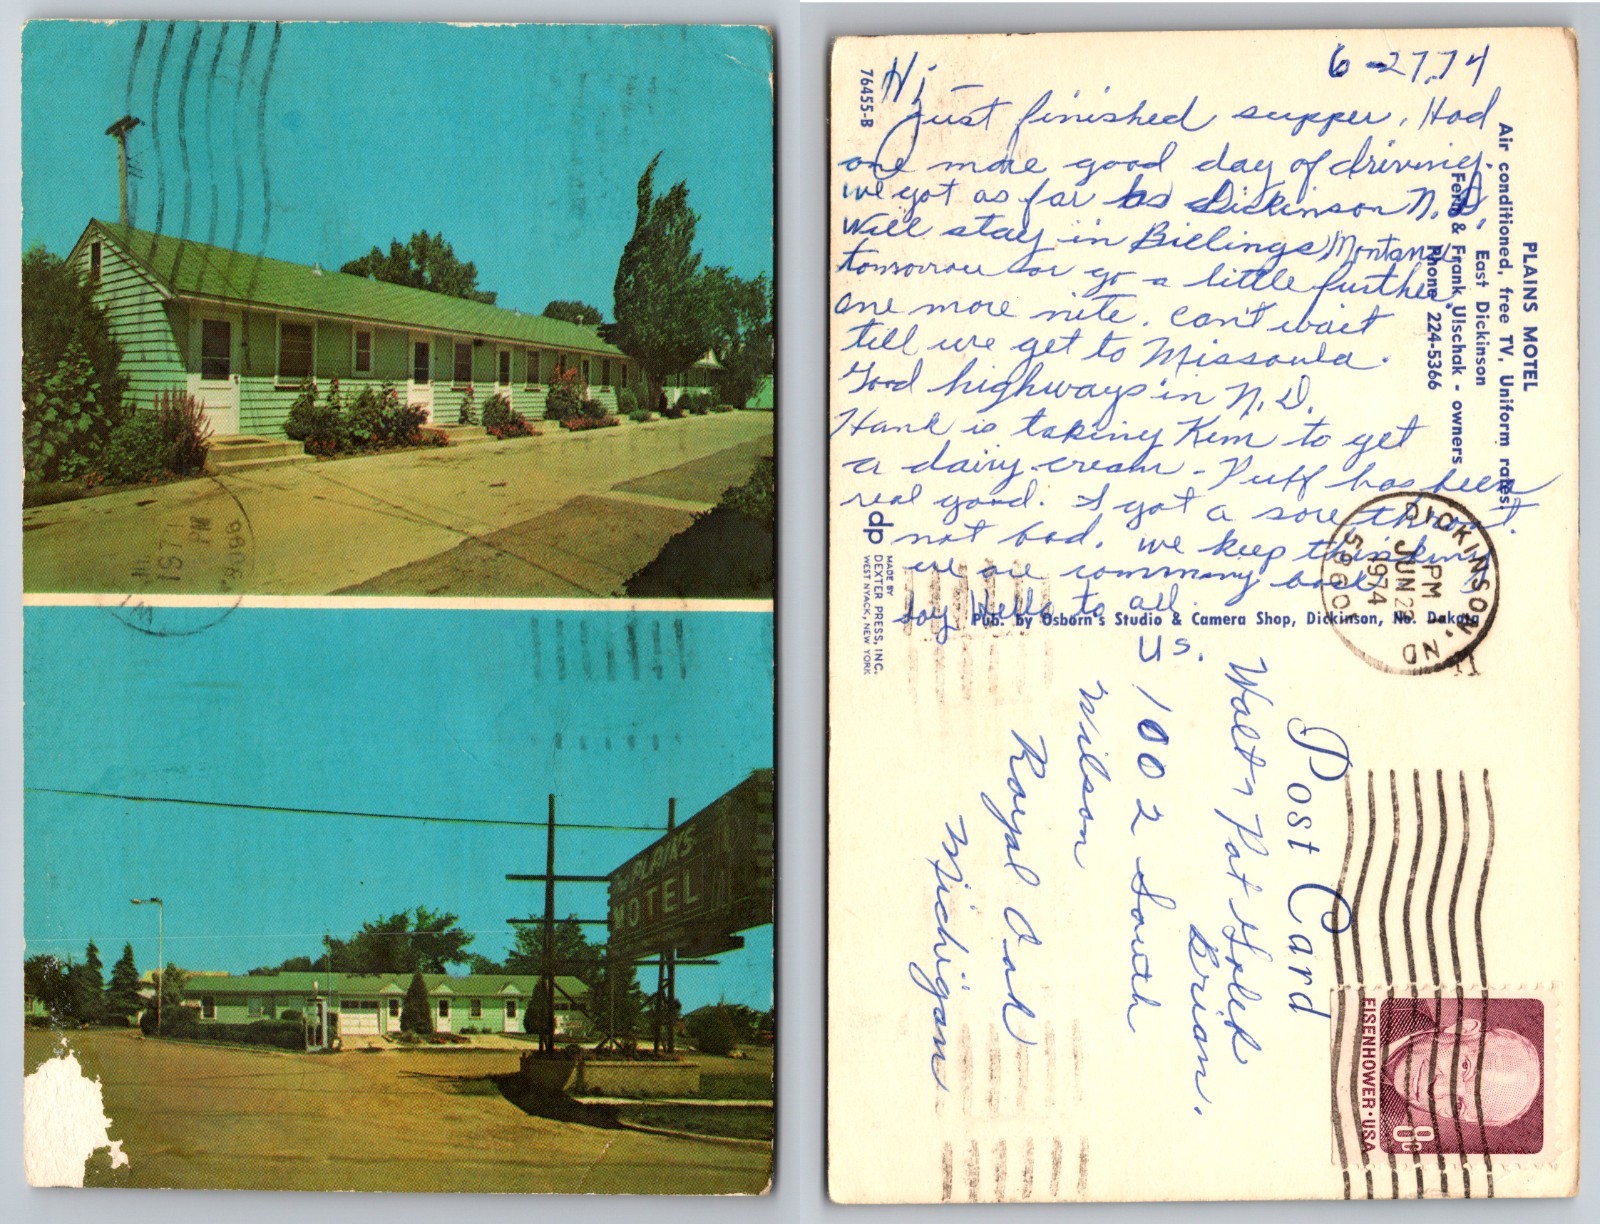 The PLAINS
MOTEL
6-27,74
Hi,
Just finished supper. Had
one more good day of driving.
we got as far as Dickinson N.D.
Will stay in Billings, Montana
tomorrow or go a little further
one more nite. Can't wait
till we get to Missoula.
Good highways in N.D.
Hank is taking Kim to get
a dairy cream - Puff has been
real good. I got a sore throat.
not bad. we keep thinking
we are comming back
Say Hello to all.
Us.
PLAINS MOTEL
Air conditioned, free TV, Uniform rates.
East Dickinson
Fern & Frank Ulschak - owners
Phone 224-5366
76455-B
dp
MADE BY
DEXTER PRESS, INC.
WEST NYACK, NEW YORK
Pub. by Osborn's Studio & Camera Shop, Dickinson, No. Dakota
Post Card
DICKINSON, ND
PM
JUN 28
1974
58601
EISENHOWER·USA
8c
Walt & Pat
Brian.
1002 South
Wilson
Royal Oak
Michigan
PM
197